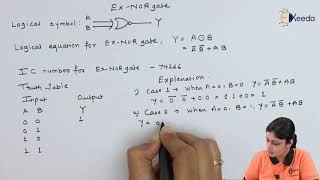 Ex-NOR gate
Ekeeda
Logical symbol: A B Y
Logical equation for Ex-NOR gate, Y = A ⊙ B
= A̅ B̅ + A B
IC number for Ex-NOR gate - 74266
Truth Table
Input Output
A B Y
0 0 1
0 1
1 0
1 1
Explanation
1) Case 1 → When A=0, B=0 Y = A̅B̅ + AB
Y = 0̅ . 0̅ + 0.0 = 1.1 + 0 = 1
2) Case 2 → When A=0, B=1, Y = A̅B̅ + AB
Y = 0